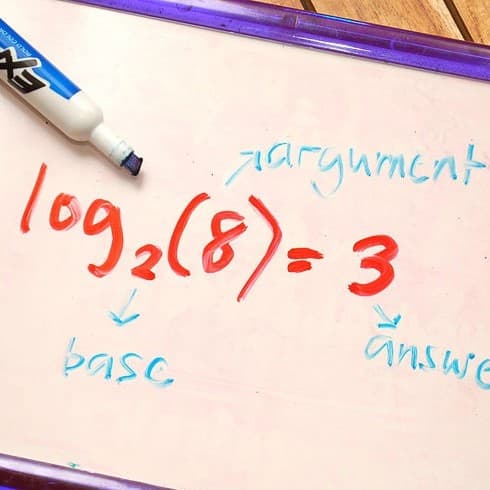 EX
argument
log₂(8) = 3
base
answe